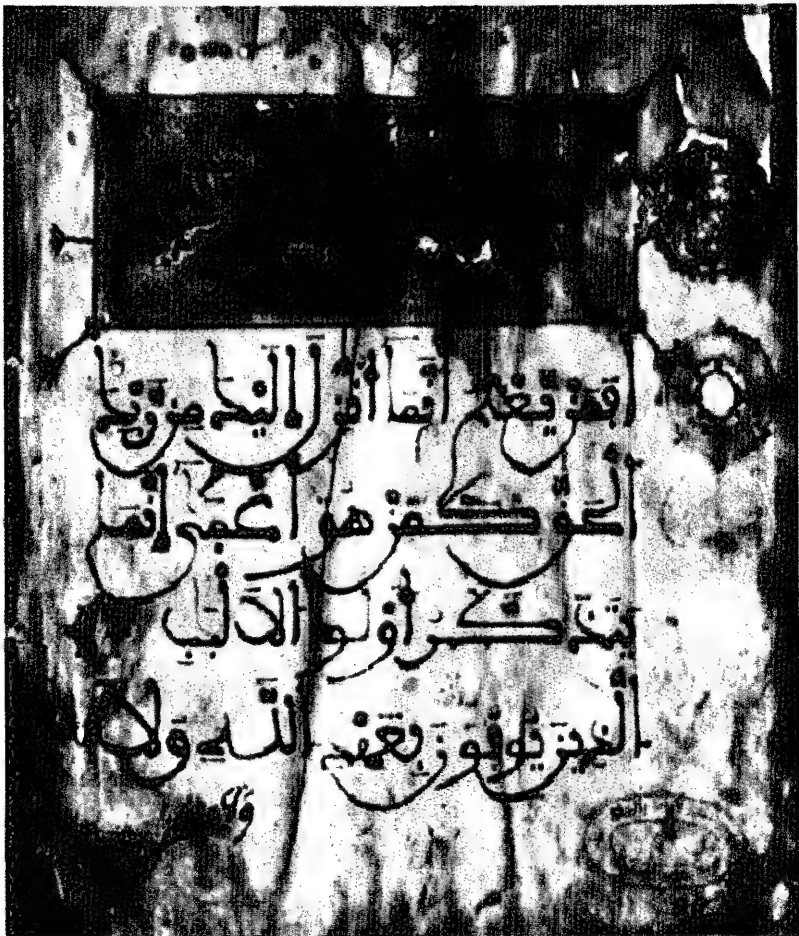 اَفَمَن يَّعْلَمُ أَنَّمَا أُنزِلَ إِلَيْكَ مِن رَّبِّكَ
اَلْحَقُّ كَمَنْ هُوَ أَعْمَىٰ إِنَّمَا
يَتَذَكَّرُ أُوْلُو اَلَالْبَبِ
اَلذِينَ يُوفُونَ بِعَهْدِ اِللَّهِ وَلَا